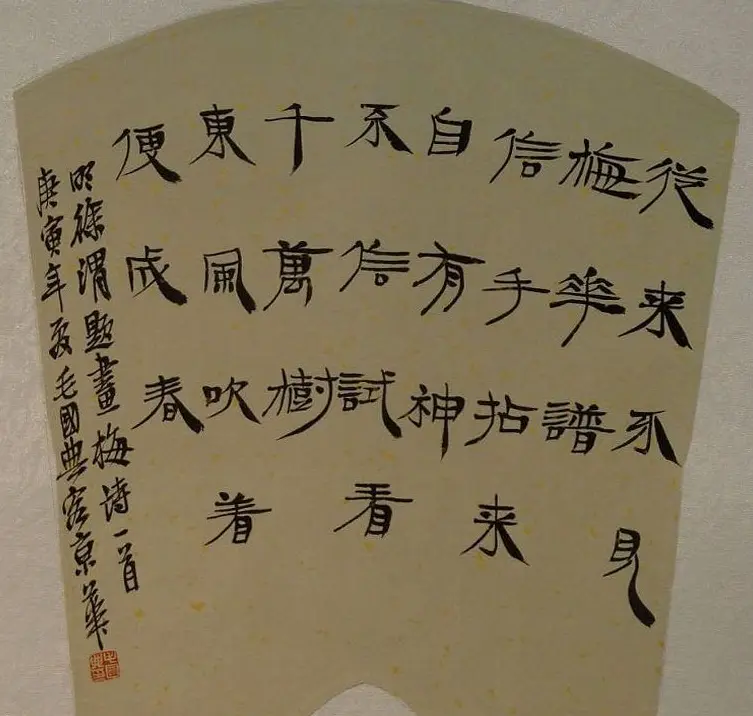 從来不見
梅華譜
信手拈来
自有神
不信試看
千萬樹
東風吹着
便成春
明徐渭題畫梅诗一首
庚寅年夏毛國典客京華